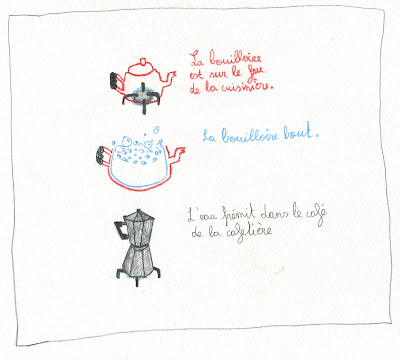 La bouilloire
est sur le feu
de la cuisinière.
La bouilloire bout.
L'eau frémit dans le café
de la cafetière